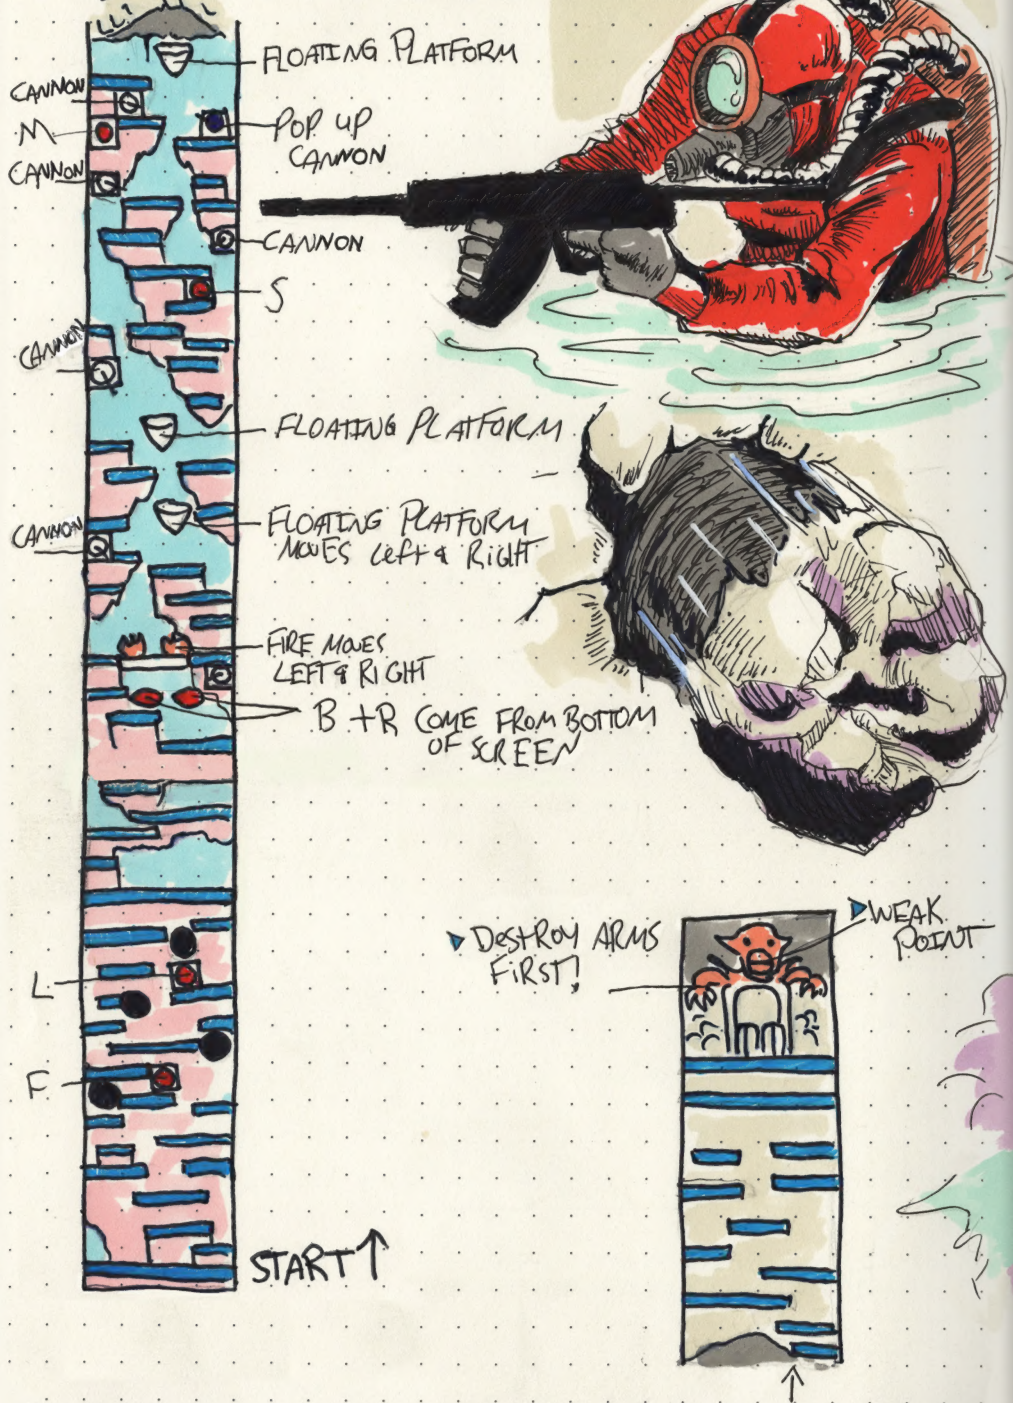 FLOATING PLATFORM
CANNON
M
POP UP
CANNON
CANNON
CANNON
S
CANNON
FLOATING PLATFORM
CANNON
FLOATING PLATFORM
MOVES Left & Right
FIRE MOVES
LEFT & RIGHT
B + R COME FROM BOTTOM
OF SCREEN
L
F
START ↑
DeStROY ARMS
FiRST!
WEAK
POINT